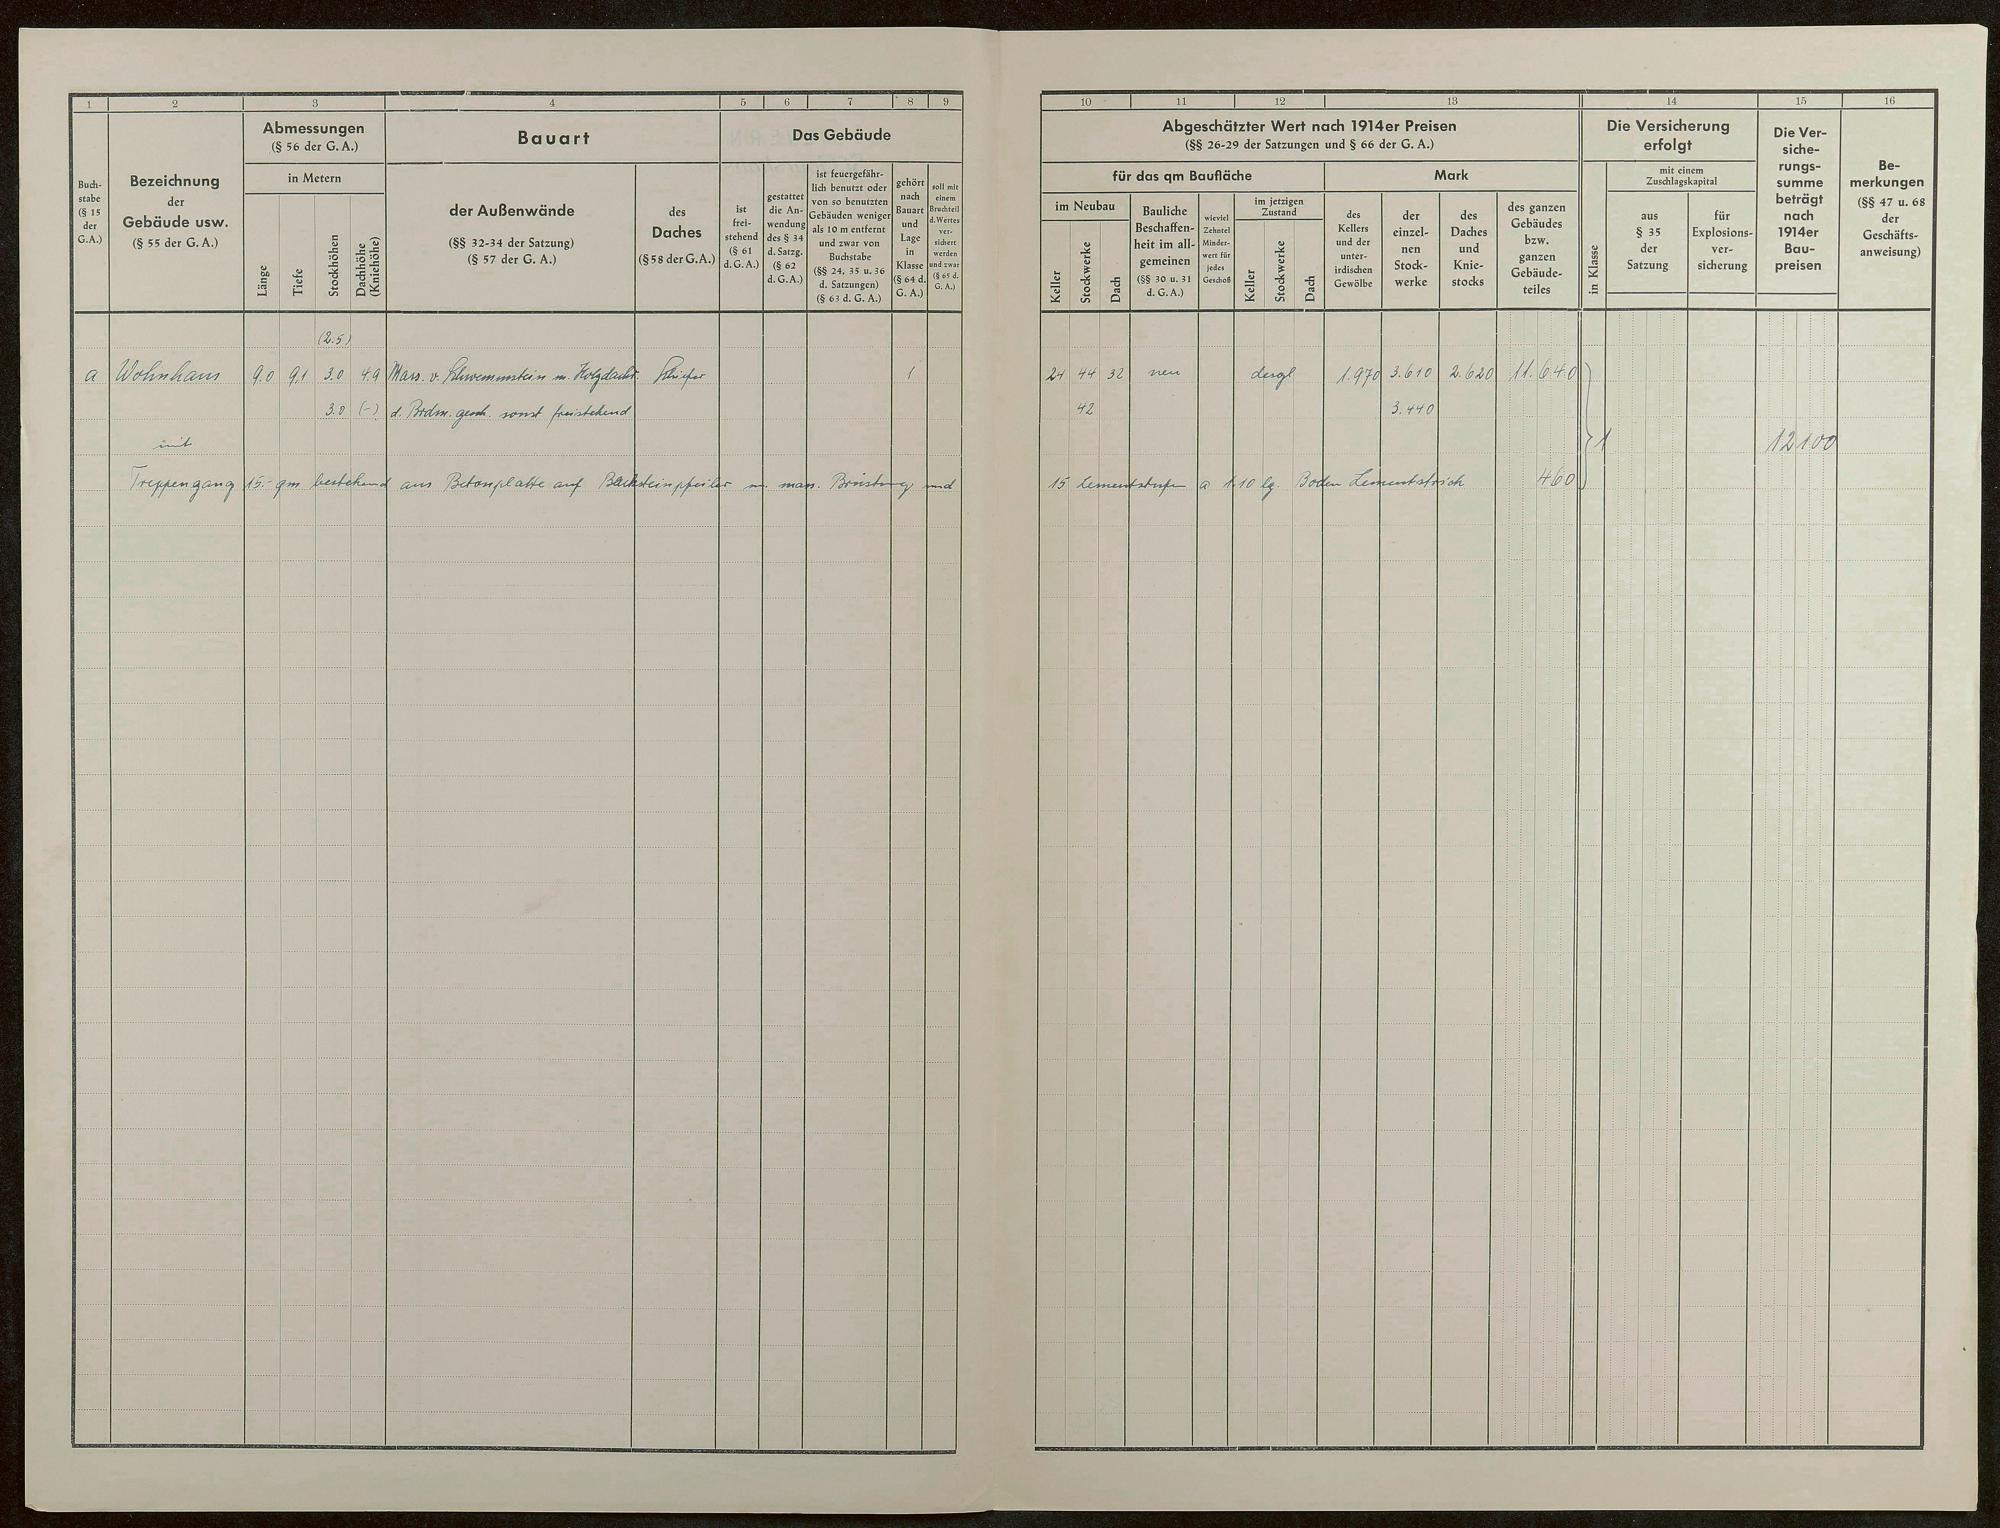 1 2 3 4 5 6 7 8 9
Buch-
stabe
(§ 15
der
G.A.)
Bezeichnung
der
Gebäude usw.
(§ 55 der G. A.)
Abmessungen
(§ 56 der G. A.)
in Metern
Länge
Tiefe
Stockhöhen
Dachhöhe
(Kniehöhe)
Bauart
der Außenwände
(§§ 32-34 der Satzung)
(§ 57 der G. A.)
des
Daches
(§ 58 der G.A.)
Das Gebäude
ist
frei-
stehend
(§ 61
d. G. A.)
gestattet
die An-
wendung
des § 34
d. Satzg.
(§ 62
d. G.A.)
ist feuergefähr-
lich benutzt oder
von so benutzten
Gebäuden weniger
als 10 m entfernt
und zwar von
Buchstabe
(§§ 24, 35 u. 36
d. Satzungen)
(§ 63 d. G. A.)
gehört
nach
Bauart
und
Lage
in
Klasse
(§ 64 d.
G. A.)
soll mit
einem
Bruchteil
d. Wertes
ver-
sichert
werden
und zwar
(§ 65 d.
G. A.)
(2.5)
a Wohnhaus 9.0 9,1 3.0 4.9 Mass. v. Schwemmstein m. Holzdachst. Schiefer 1
3.0 (-) d. Brdm. gesch. sonst freistehend
mit
Treppengang 15.- qm bestehend aus Betonplatte auf Backsteinpfeiler m. mass. Brüstung und
10 11 12 13 14 15 16
Abgeschätzter Wert nach 1914er Preisen
(§§ 26-29 der Satzungen und § 66 der G. A.)
für das qm Baufläche
im Neubau
Keller
Stockwerke
Dach
Bauliche
Beschaffen-
heit im all-
gemeinen
(§§ 30 u. 31
d. G. A.)
wieviel
Zehntel
Minder-
wert für
jedes
Geschoß
im jetzigen
Zustand
Keller
Stockwerke
Dach
Mark
des
Kellers
und der
unter-
irdischen
Gewölbe
der
einzel-
nen
Stock-
werke
des
Daches
und
Knie-
stocks
des ganzen
Gebäudes
bzw.
ganzen
Gebäude-
teiles
Die Versicherung
erfolgt
in Klasse
mit einem
Zuschlagskapital
aus
§ 35
der
Satzung
für
Explosions-
ver-
sicherung
Die Ver-
siche-
rungs-
summe
beträgt
nach
1914er
Bau-
preisen
Be-
merkungen
(§§ 47 u. 68
der
Geschäfts-
anweisung)
24 44 32 neu desgl 1.970 3.610 2.620 11.640
42 3.440
1 12100
15 Zementstufen a 1.10 lg. Boden Zementstrich 460